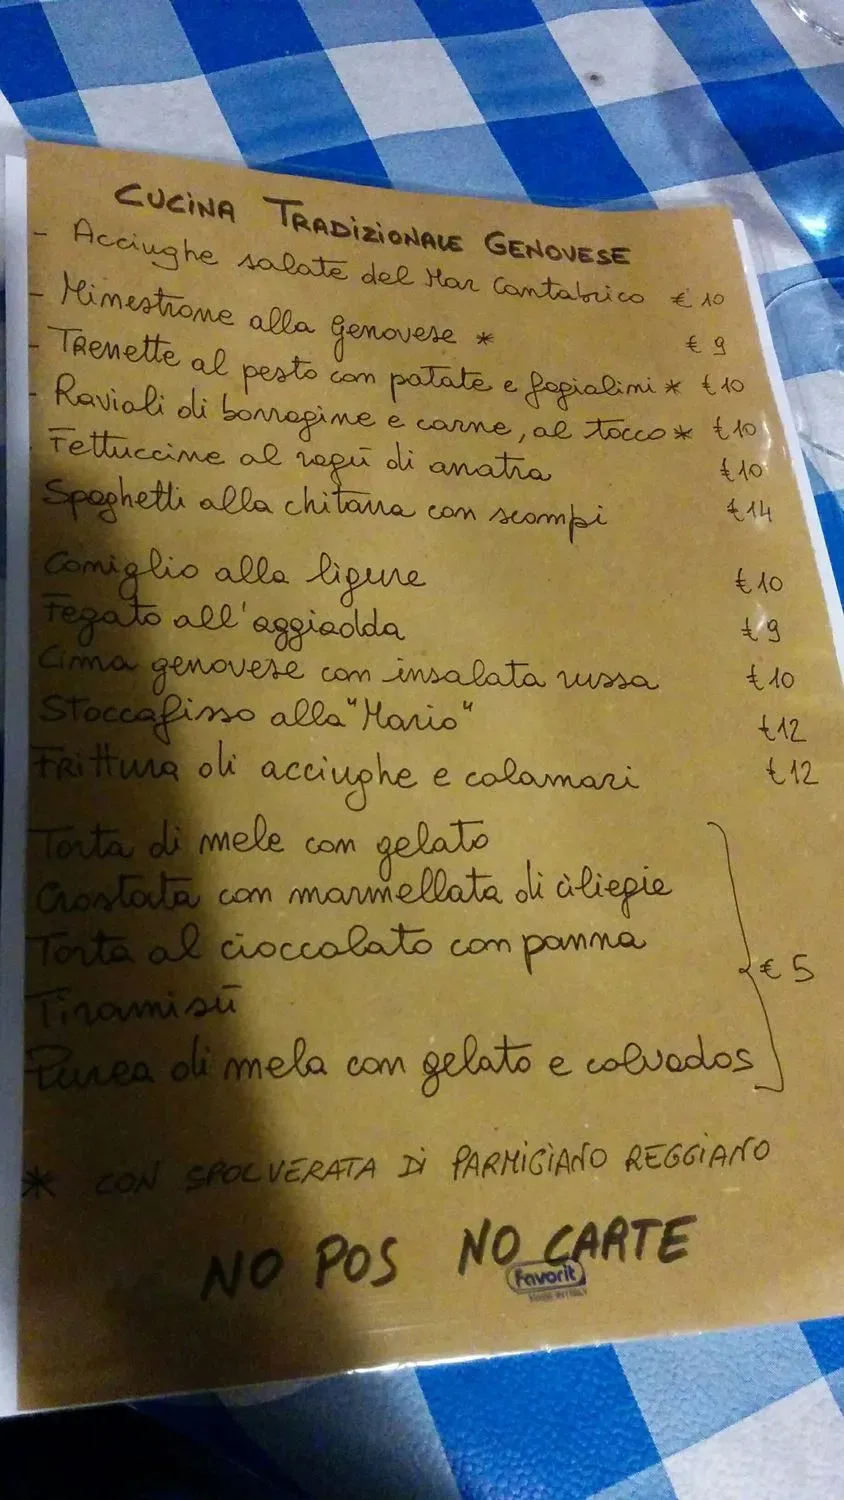 CUCINA TRADIZIONALE GENOVESE
- Acciughe salate del Mar Cantabrico € 10
- Minestrone alla genovese * € 9
- Trenette al pesto con patate e fagiolini * € 10
- Ravioli di borragine e carne, al tocco * € 10
Fettuccine al ragù di anatra € 10
Spaghetti alla chitarra con scampi € 14
Coniglio alla ligure € 10
Fegato all'aggiadda € 9
Cima genovese con insalata russa € 10
Stoccafisso alla "Mario" € 12
Frittura di acciughe e calamari € 12
Torta di mele con gelato
Crostata con marmellata di ciliegie
Torta al cioccolato con panna
€ 5
Tiramisù
Purea di mela con gelato e calvados
* CON SPOLVERATA DI PARMIGIANO REGGIANO
NO POS NO CARTE
Favorit
MADE IN ITALY